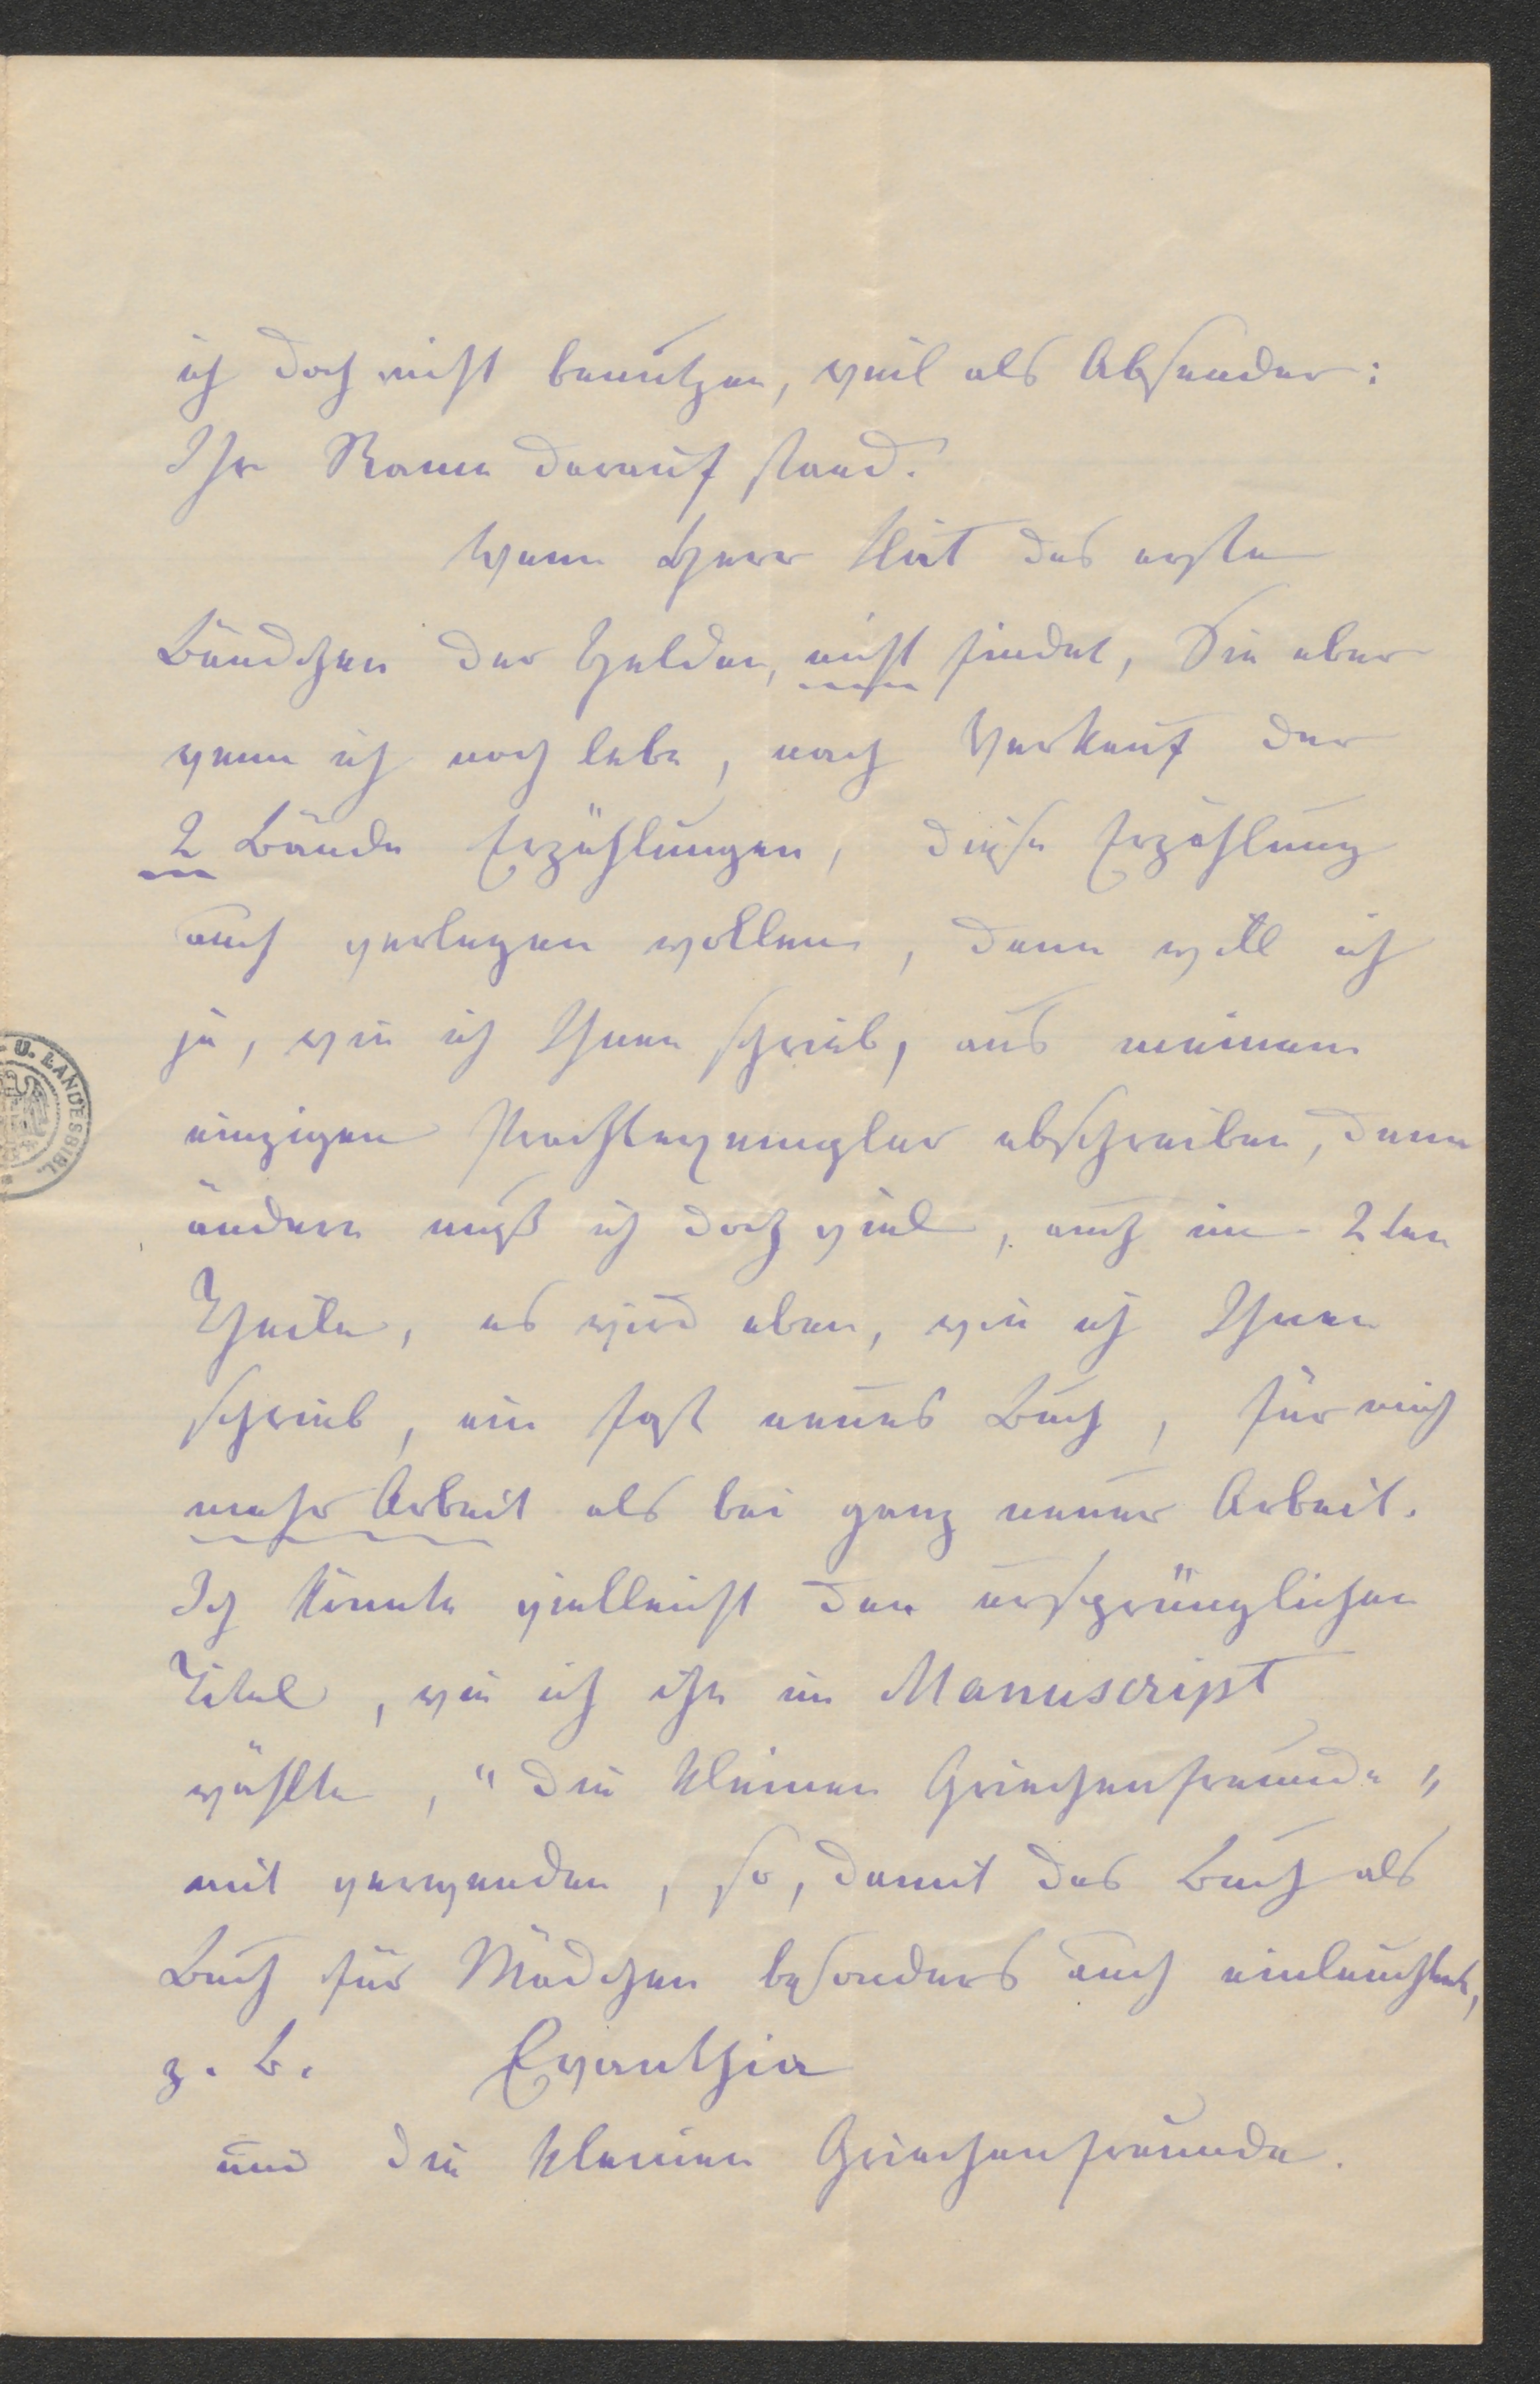 ich doch nicht benützen, weil als Absender:
Ihr Name darauf stand.
Wenn Herr Hirt das erste
Bändchen der Helden, nicht findet, Sie aber
wenn ich noch lebe, nach Verkauf der
2 Bände Erzählungen, diese Erzählung
auch verlegen wollen, dann will ich
ja, wie ich Ihnen schrieb, aus meinem
einzigen Prachtexemplar abschreiben, denn
ändern muß ich doch viel, auch im 2ten
Theile, es wird eben, wie ich Ihnen
schrieb, ein fast neues Buch, für mich
mehr Arbeit als bei ganz neuer Arbeit.
Ich könnte vielleicht den ursprünglichen
Titel, wie ich ihn im Manuscript
wählte, "Die kleinen Griechenfreunde"
mit verwenden, so, damit das Buch als
Buch für Mädchen besonders auch einleuchtet,
z. B. Evanthia
und die kleinen Griechenfreunde.
U. LANDESBIBL.